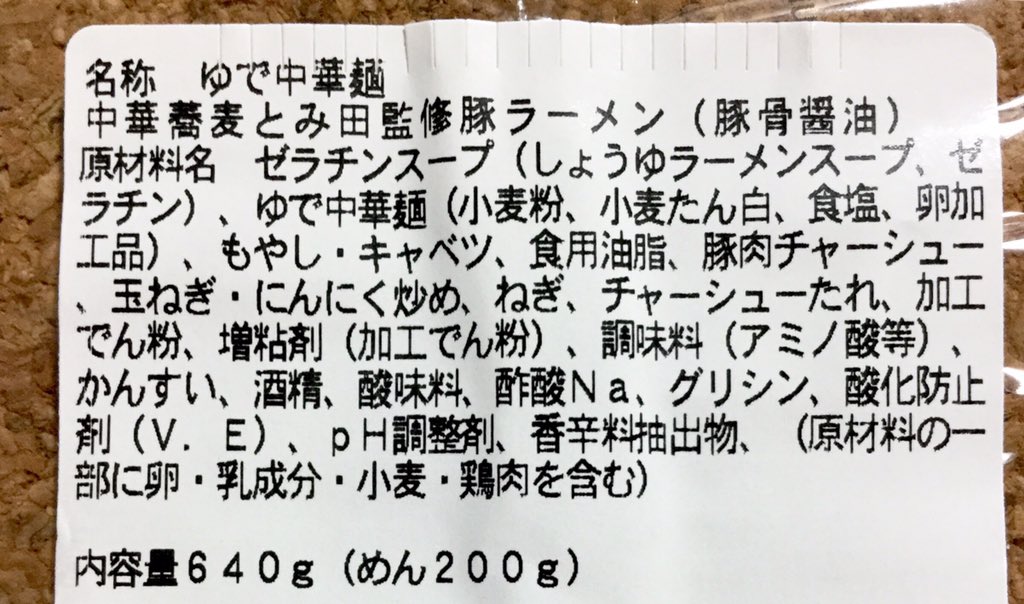 名称　ゆで中華麺
中華蕎麦とみ田監修豚ラーメン（豚骨醤油）
原材料名　ゼラチンスープ（しょうゆラーメンスープ、ゼ
ラチン）、ゆで中華麺（小麦粉、小麦たん白、食塩、卵加
工品）、もやし・キャベツ、食用油脂、豚肉チャーシュー
、玉ねぎ・にんにく炒め、ねぎ、チャーシューたれ、加工
でん粉、増粘剤（加工でん粉）、調味料（アミノ酸等）、
かんすい、酒精、酸味料、酢酸Ｎａ、グリシン、酸化防止
剤（Ｖ．Ｅ）、ｐＨ調整剤、香辛料抽出物、（原材料の一
部に卵・乳成分・小麦・鶏肉を含む）
内容量６４０ｇ（めん２００ｇ）